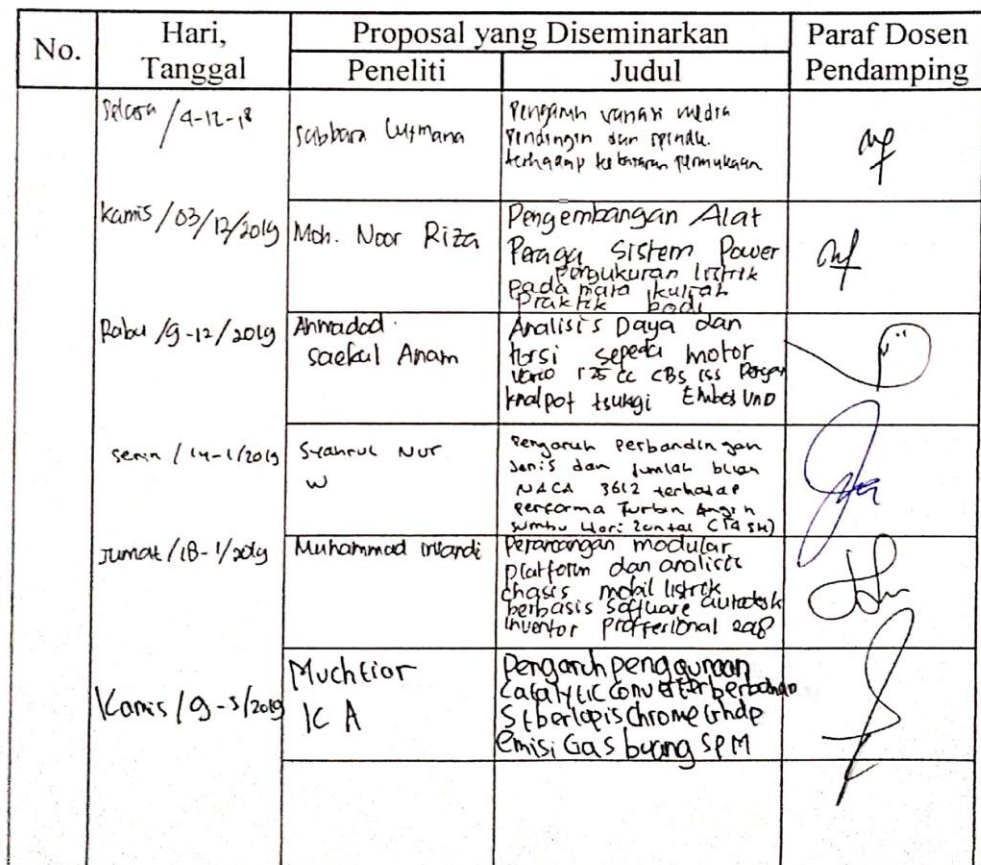 No.
Hari,
Tanggal
Proposal yang Diseminarkan
Peneliti
Judul
Paraf Dosen
Pendamping
Selasa / 4-12-18
Sabbara Lutmana
Pengaruh variasi media
Pendingin dan spindle
terhadap kekasaran permukaan
Kamis / 03/12/2019
Moh. Noor Riza
Pengembangan Alat
Peraga Sistem Power
pengukuran listrik
pada mata kuliah
Praktik bodi
Rabu / 9-12/2019
Ahmadad
Saeful Anam
Analisis Daya dan
torsi sepeda motor
Vario 125 cc CBS ISS Dengan
knalpot tsukigi
Senin / 14-1/2019
Syahrul Nur
W
Pengaruh Perbandingan
Jenis dan Jumlah bilah
NACA 3612 terhadap
Performa Turbin Angin
Sumbu Horizontal (TASH)
Jumat / 18-1/2019
Muhammad
Perancangan modular
platform dan analisis
chasis mobil listrik
berbasis software autodesk
inventor 2018
Kamis / 9-5/2019
Muchtior
K A
Pengaruh penggunaan
catalytic converter berbahan
St berlapis chrome trhdp
emisi Gas buang SPM